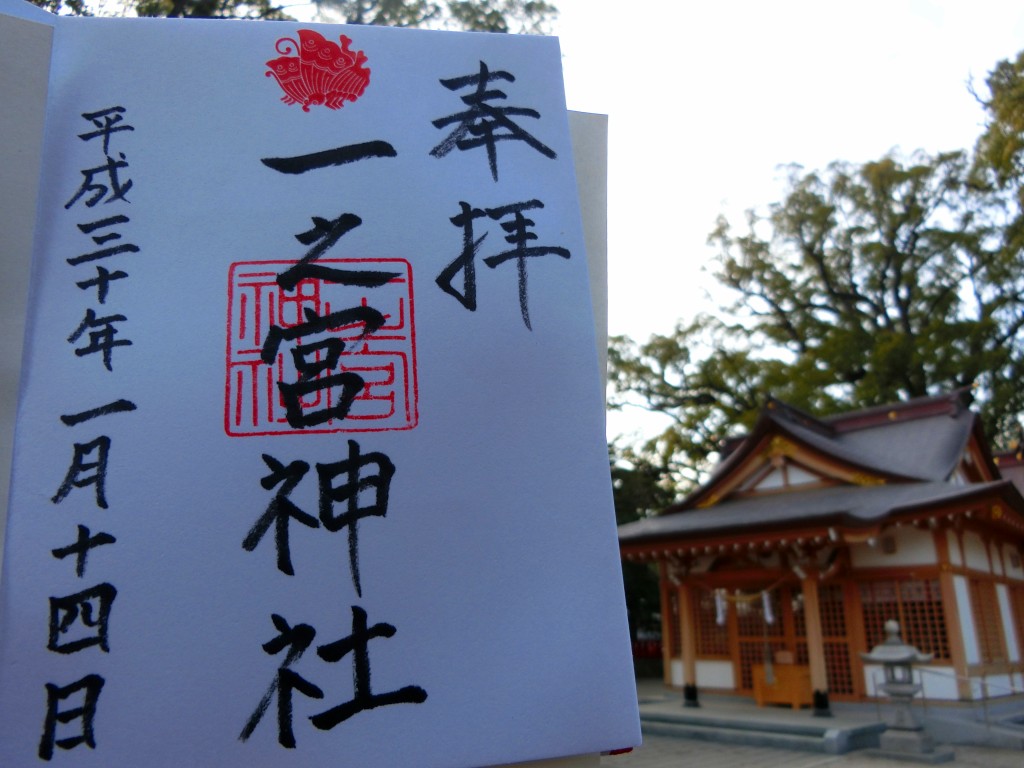 奉拝
一之宮神社
平成三十年一月十四日